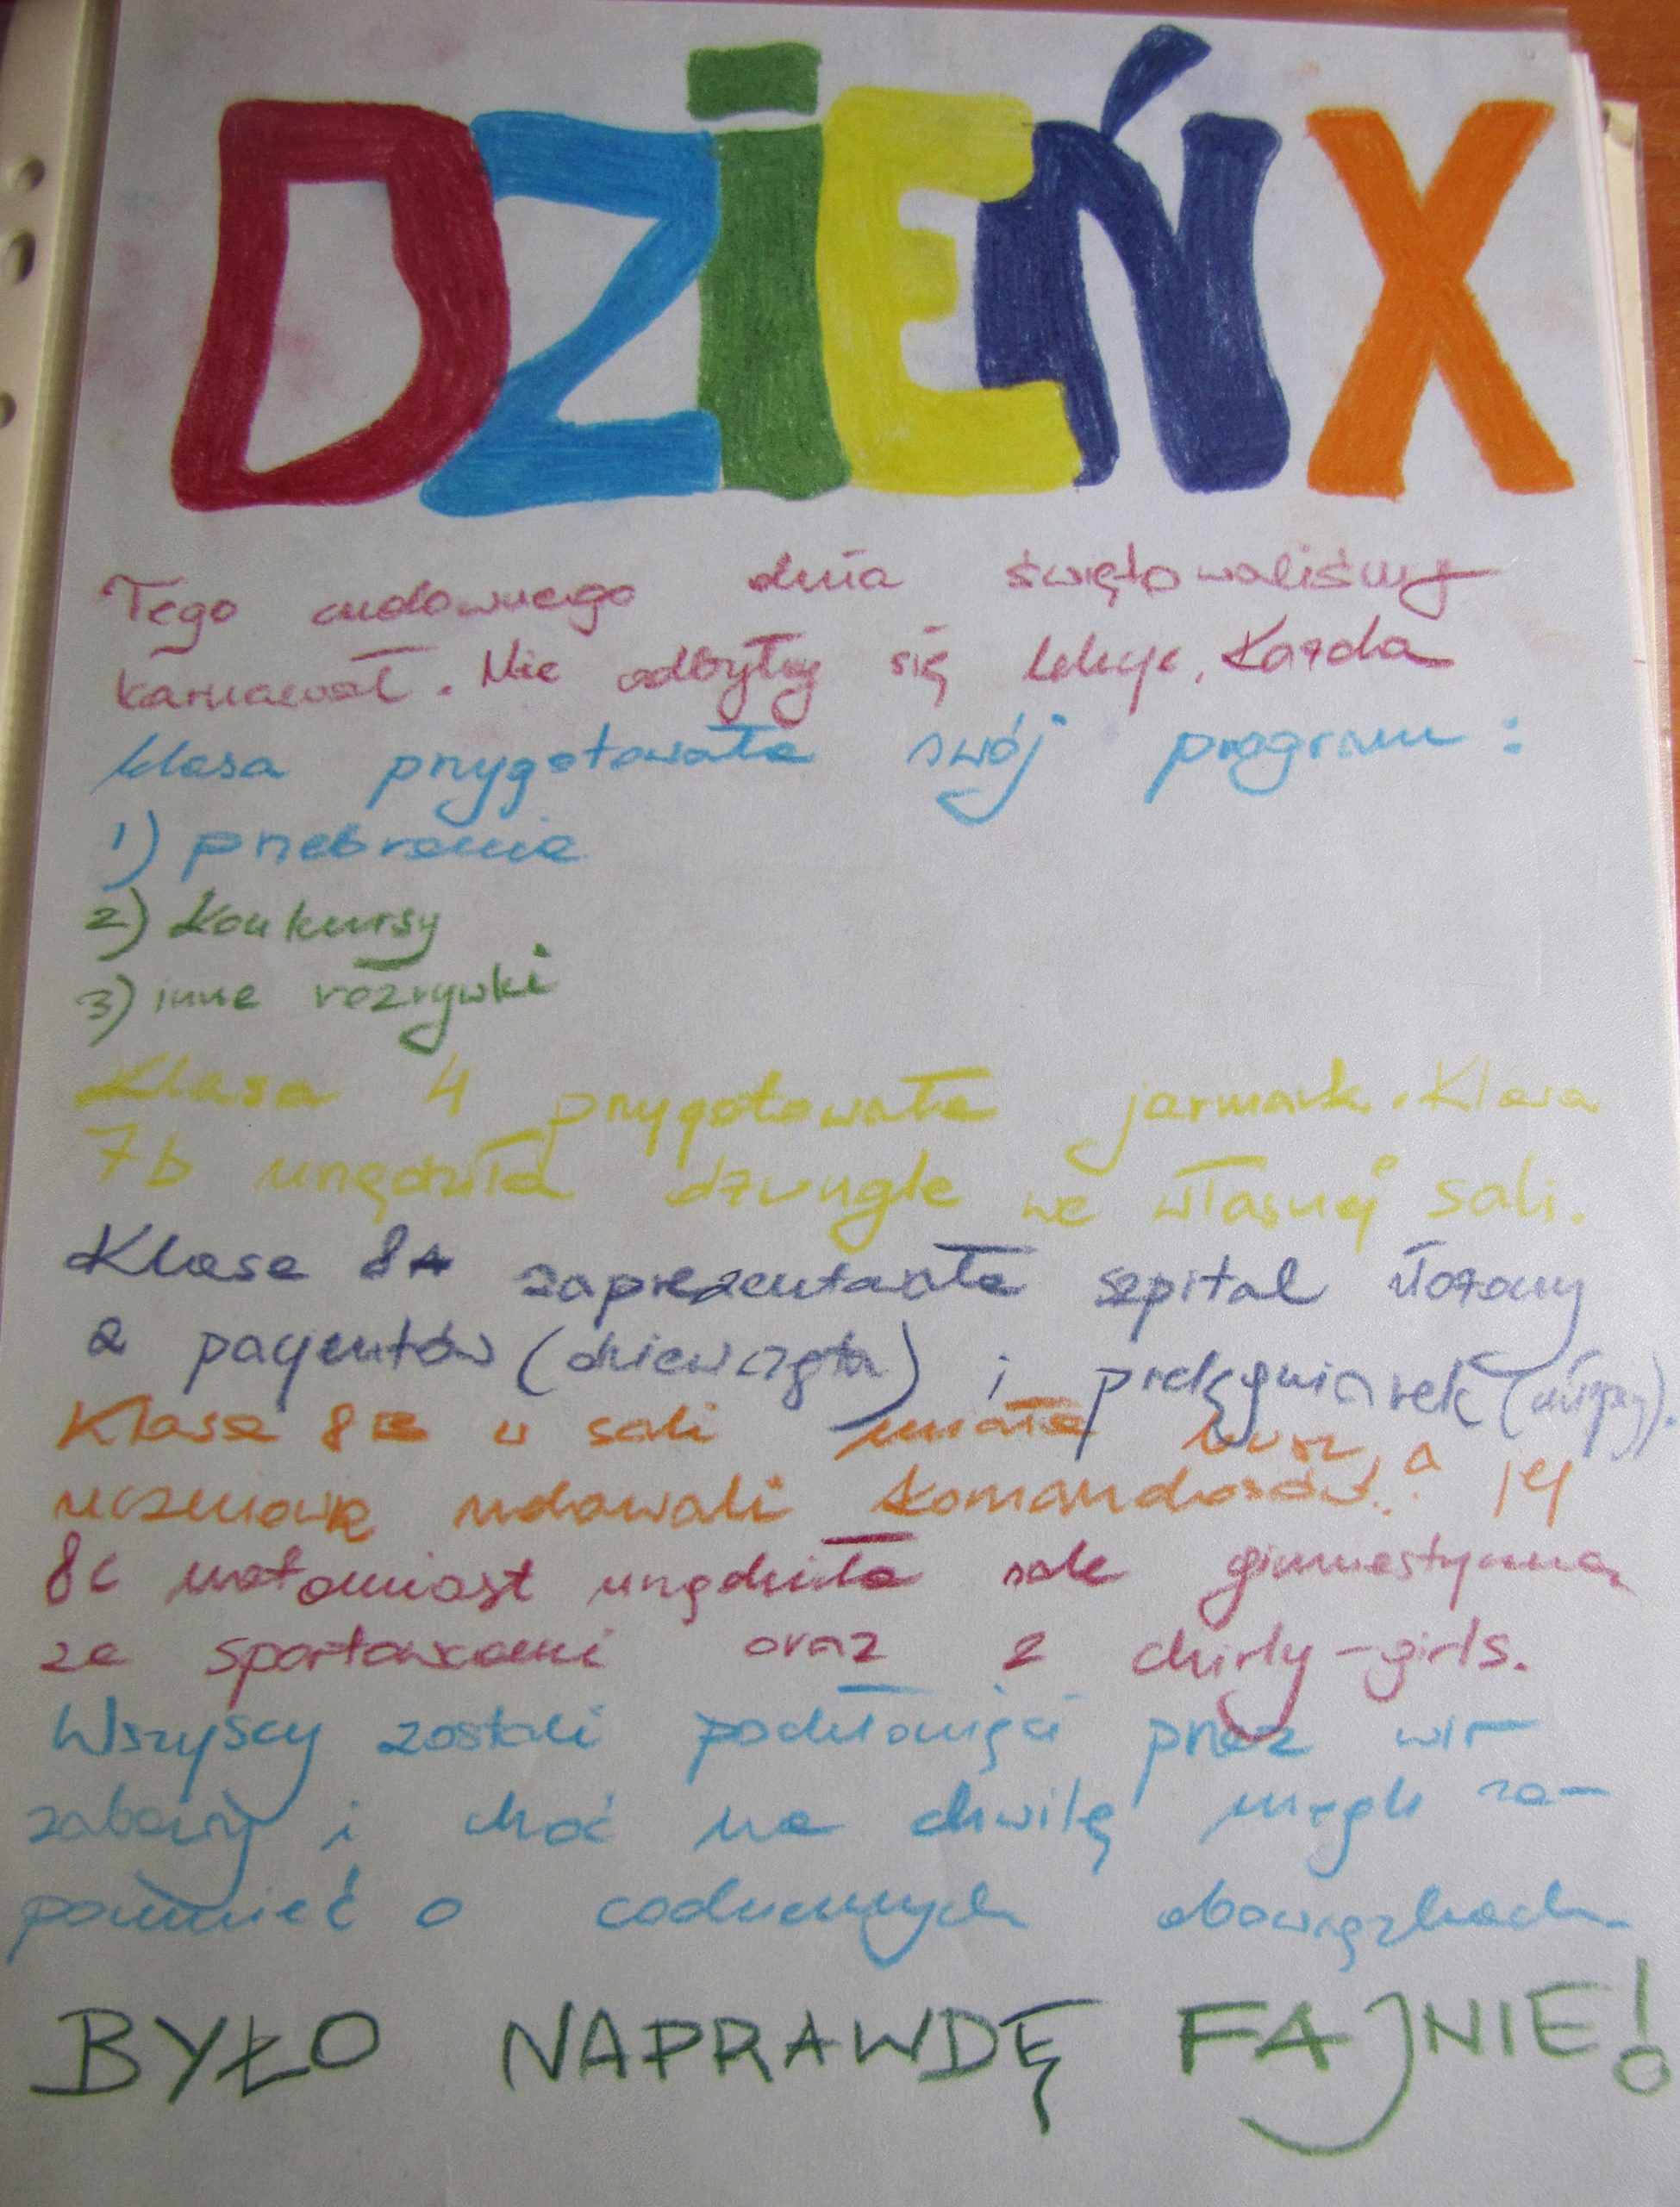 DZiEŃ X
Tego cudownego dnia świętowaliśmy
karnawał. Nie odbyły się lekcje. Każda
klasa przygotowała swój program:
1) przebranie
2) Konkursy
3) inne rozrywki
Klasa 4 przygotowała jarmark. Klasa
7b urządziła dżungle we własnej sali.
Klasa 8A zaprezentowała szpital złożony
z pacjentów (dziewczęta) i pielęgniarek (chłopcy).
Klasa 8B w sali miała busz, a jej
uczniowie udawali komandosów.
8c natomiast urządziła sale gimnastyczną
ze sportowcami oraz z chirly-girls.
Wszyscy zostali pochłonięci przez wir
zabawy i choć na chwilę mogli za-
pomnieć o codziennych obowiązkach
BYŁO NAPRAWDĘ FAJNIE!